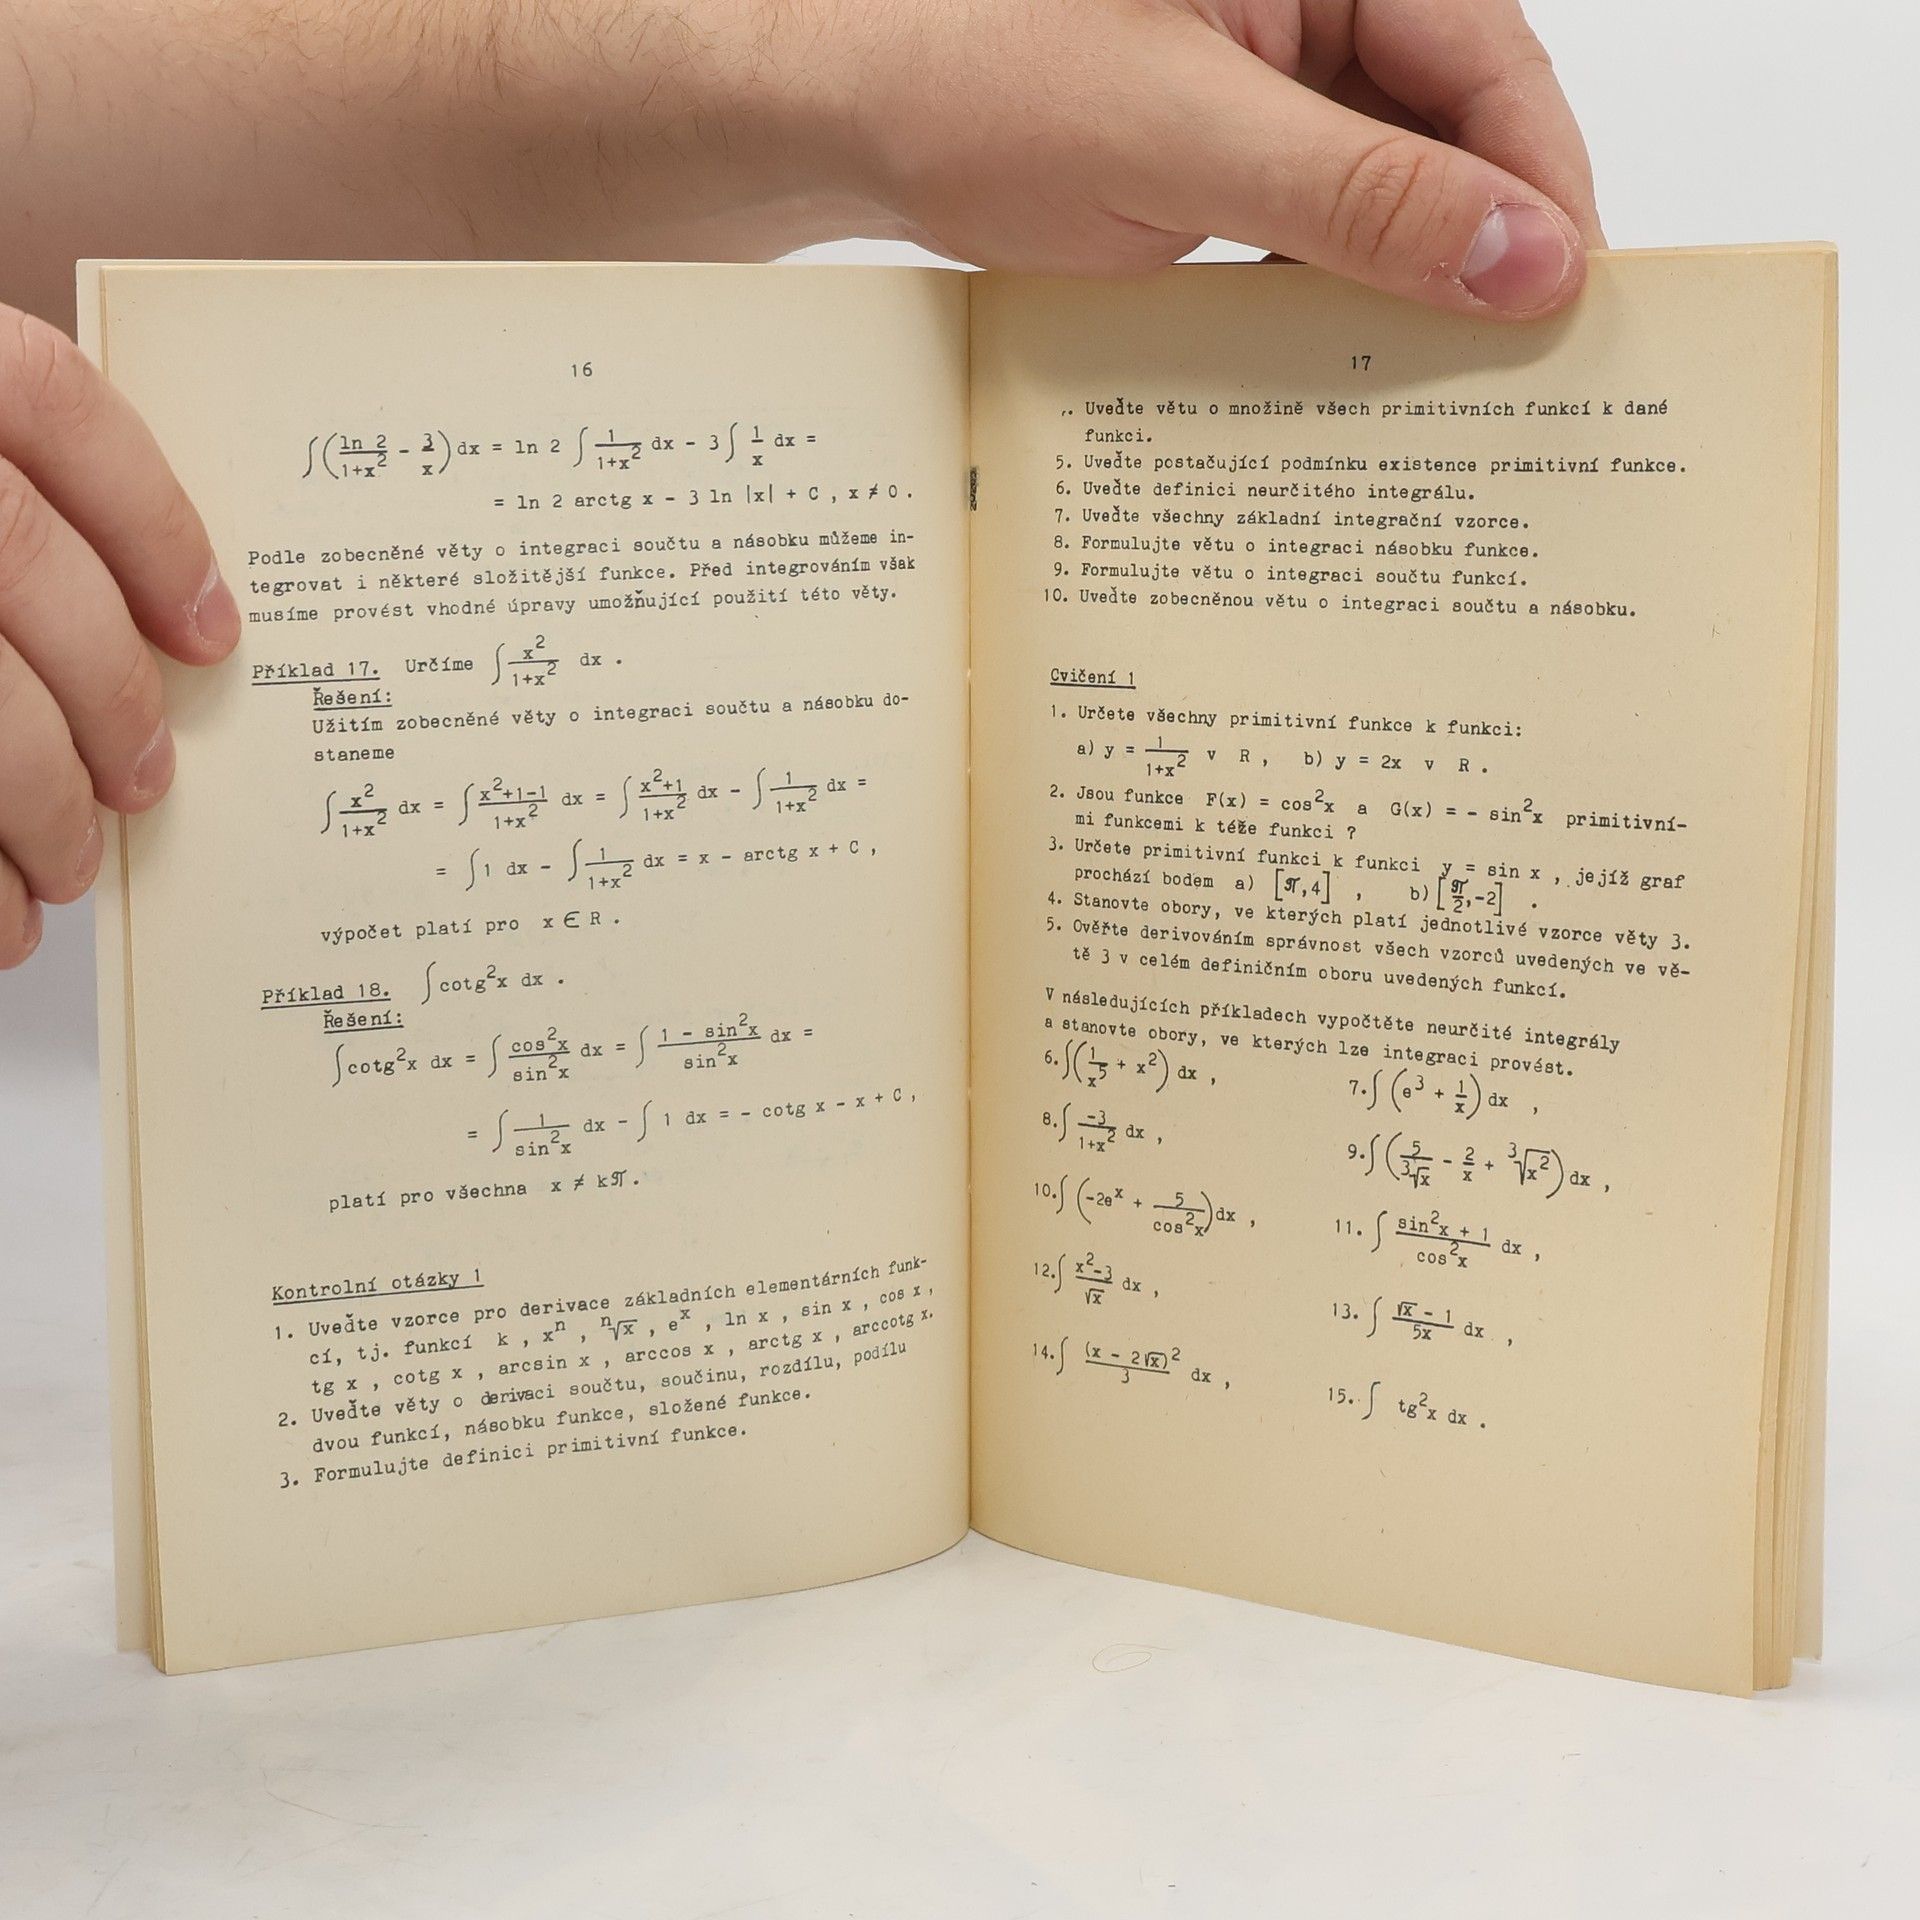 16
∫(ln 2/(1+x²) - 3/x) dx = ln 2 ∫ 1/(1+x²) dx - 3 ∫ 1/x dx =
= ln 2 arctg x - 3 ln |x| + C , x ≠ 0 .
Podle zobecněné věty o integraci součtu a násobku můžeme in-
tegrovat i některé složitější funkce. Před integrováním však
musíme provést vhodné úpravy umožňující použití této věty.
Příklad 17. Určíme ∫ x²/(1+x²) dx .
Řešení:
Užitím zobecněné věty o integraci součtu a násobku do-
staneme
∫ x²/(1+x²) dx = ∫ (x²+1-1)/(1+x²) dx = ∫ (x²+1)/(1+x²) dx - ∫ 1/(1+x²) dx =
= ∫ 1 dx - ∫ 1/(1+x²) dx = x - arctg x + C ,
výpočet platí pro x ∈ R .
Příklad 18. ∫ cotg²x dx .
Řešení:
∫ cotg²x dx = ∫ cos²x/sin²x dx = ∫ (1 - sin²x)/sin²x dx =
= ∫ 1/sin²x dx - ∫ 1 dx = - cotg x - x + C ,
platí pro všechna x ≠ kπ .
Kontrolní otázky 1
1. Uveďte vzorce pro derivace základních elementárních funk-
cí, tj. funkcí k , xⁿ , ⁿ√x , eˣ , ln x , sin x , cos x ,
tg x , cotg x , arcsin x , arccos x , arctg x , arccotg x.
2. Uveďte věty o derivaci součtu, součinu, rozdílu, podílu
dvou funkcí, násobku funkce, složené funkce.
3. Formulujte definici primitivní funkce.
17
. Uveďte větu o množině všech primitivních funkcí k dané
funkci.
5. Uveďte postačující podmínku existence primitivní funkce.
6. Uveďte definici neurčitého integrálu.
7. Uveďte všechny základní integrační vzorce.
8. Formulujte větu o integraci násobku funkce.
9. Formulujte větu o integraci součtu funkcí.
10. Uveďte zobecněnou větu o integraci součtu a násobku.
Cvičení 1
1. Určete všechny primitivní funkce k funkci:
a) y = 1/(1+x²) v R , b) y = 2x v R .
2. Jsou funkce F(x) = cos²x a G(x) = - sin²x primitivní-
mi funkcemi k téže funkci ?
3. Určete primitivní funkci k funkci y = sin x , jejíž graf
prochází bodem a) [π,4] , b) [π/2,-2] .
4. Stanovte obory, ve kterých platí jednotlivé vzorce věty 3.
5. Ověřte derivováním správnost všech vzorců uvedených ve vě-
tě 3 v celém definičním oboru uvedených funkcí.
V následujících příkladech vypočtěte neurčité integrály
a stanovte obory, ve kterých lze integraci provést.
6. ∫(1/x⁵ + x²) dx , 7. ∫ (e³ + 1/x) dx ,
8. ∫ -3/(1+x²) dx , 9. ∫(5/³√x - 2/x + ³√x²) dx ,
10. ∫ (-2eˣ + 5/cos²x) dx , 11. ∫ (sin²x + 1)/cos²x dx ,
12. ∫ (x²-3)/√x dx , 13. ∫ (√x - 1)/5x dx ,
14. ∫ (x - 2√x)²/3 dx , 15. ∫ tg²x dx .